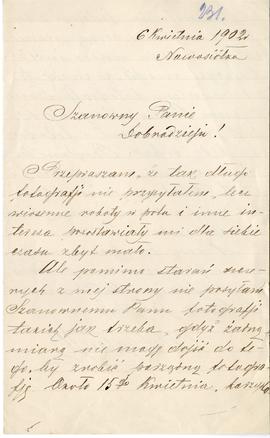 231.
6 Kwietnia 1902
Nowosiółka
Szanowny Panie
Dobrodzieju!
Przepraszam, że tak długo
fotografji nie przysyłałem, lecz
wiosenne roboty w polu i inne in-
teresa pozostawiały mi dla siebie
czasu zbyt mało.
Ale pomimo starań
z mej strony nie posyłam
Szanownemu Panu fotografji
takich jak trzeba, gdyż żadną
miarą nie mogę dojść do te-
go, by zrobić porządną fotogra-
fję. Około 15go Kwietnia,